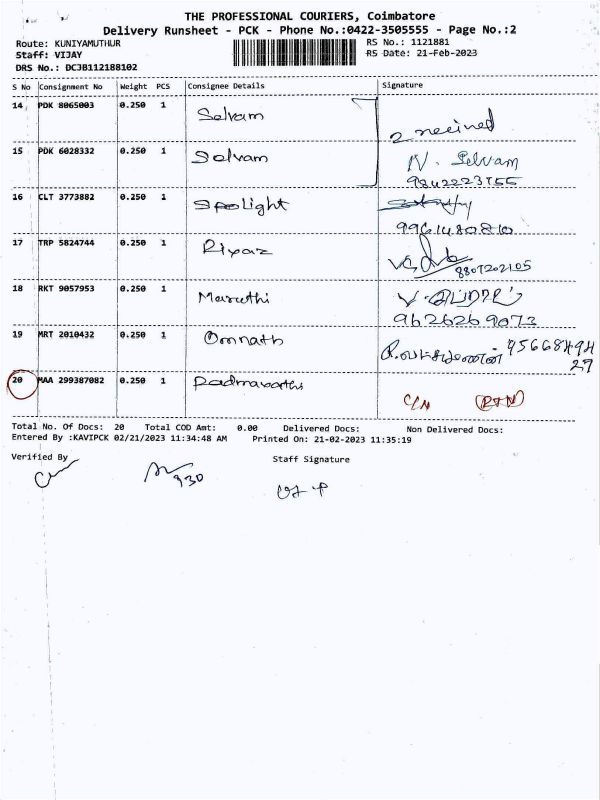 THE PROFESSIONAL COURIERS, Coimbatore
Delivery Runsheet - PCK - Phone No.:0422-3505555 - Page No.:2
Route: KUNIYAMUTHUR RS No.: 1121881
Staff: VIJAY RS Date: 21-Feb-2023
DRS No.: DCJB112188102
S No Consignment No Weight PCS Consignee Details Signature
14 PDK 8065003 0.250 1 Selvam 2 received
15 PDK 6028332 0.250 1 Selvam N. Selvam
16 CLT 3773882 0.250 1 Spolight
9961480810
17 TRP 5824744 0.250 1 Riyaz
8807202105
18 RKT 9057953 0.250 1 Maruthi
9626269073
19 MRT 2010432 0.250 1 Omnath 95668494
27
20 MAA 299387082 0.250 1 Padmavathi
Total No. Of Docs: 20 Total COD Amt: 0.00 Delivered Docs: Non Delivered Docs:
Entered By :KAVIPCK 02/21/2023 11:34:48 AM Printed On: 21-02-2023 11:35:19
Verified By Staff Signature
930